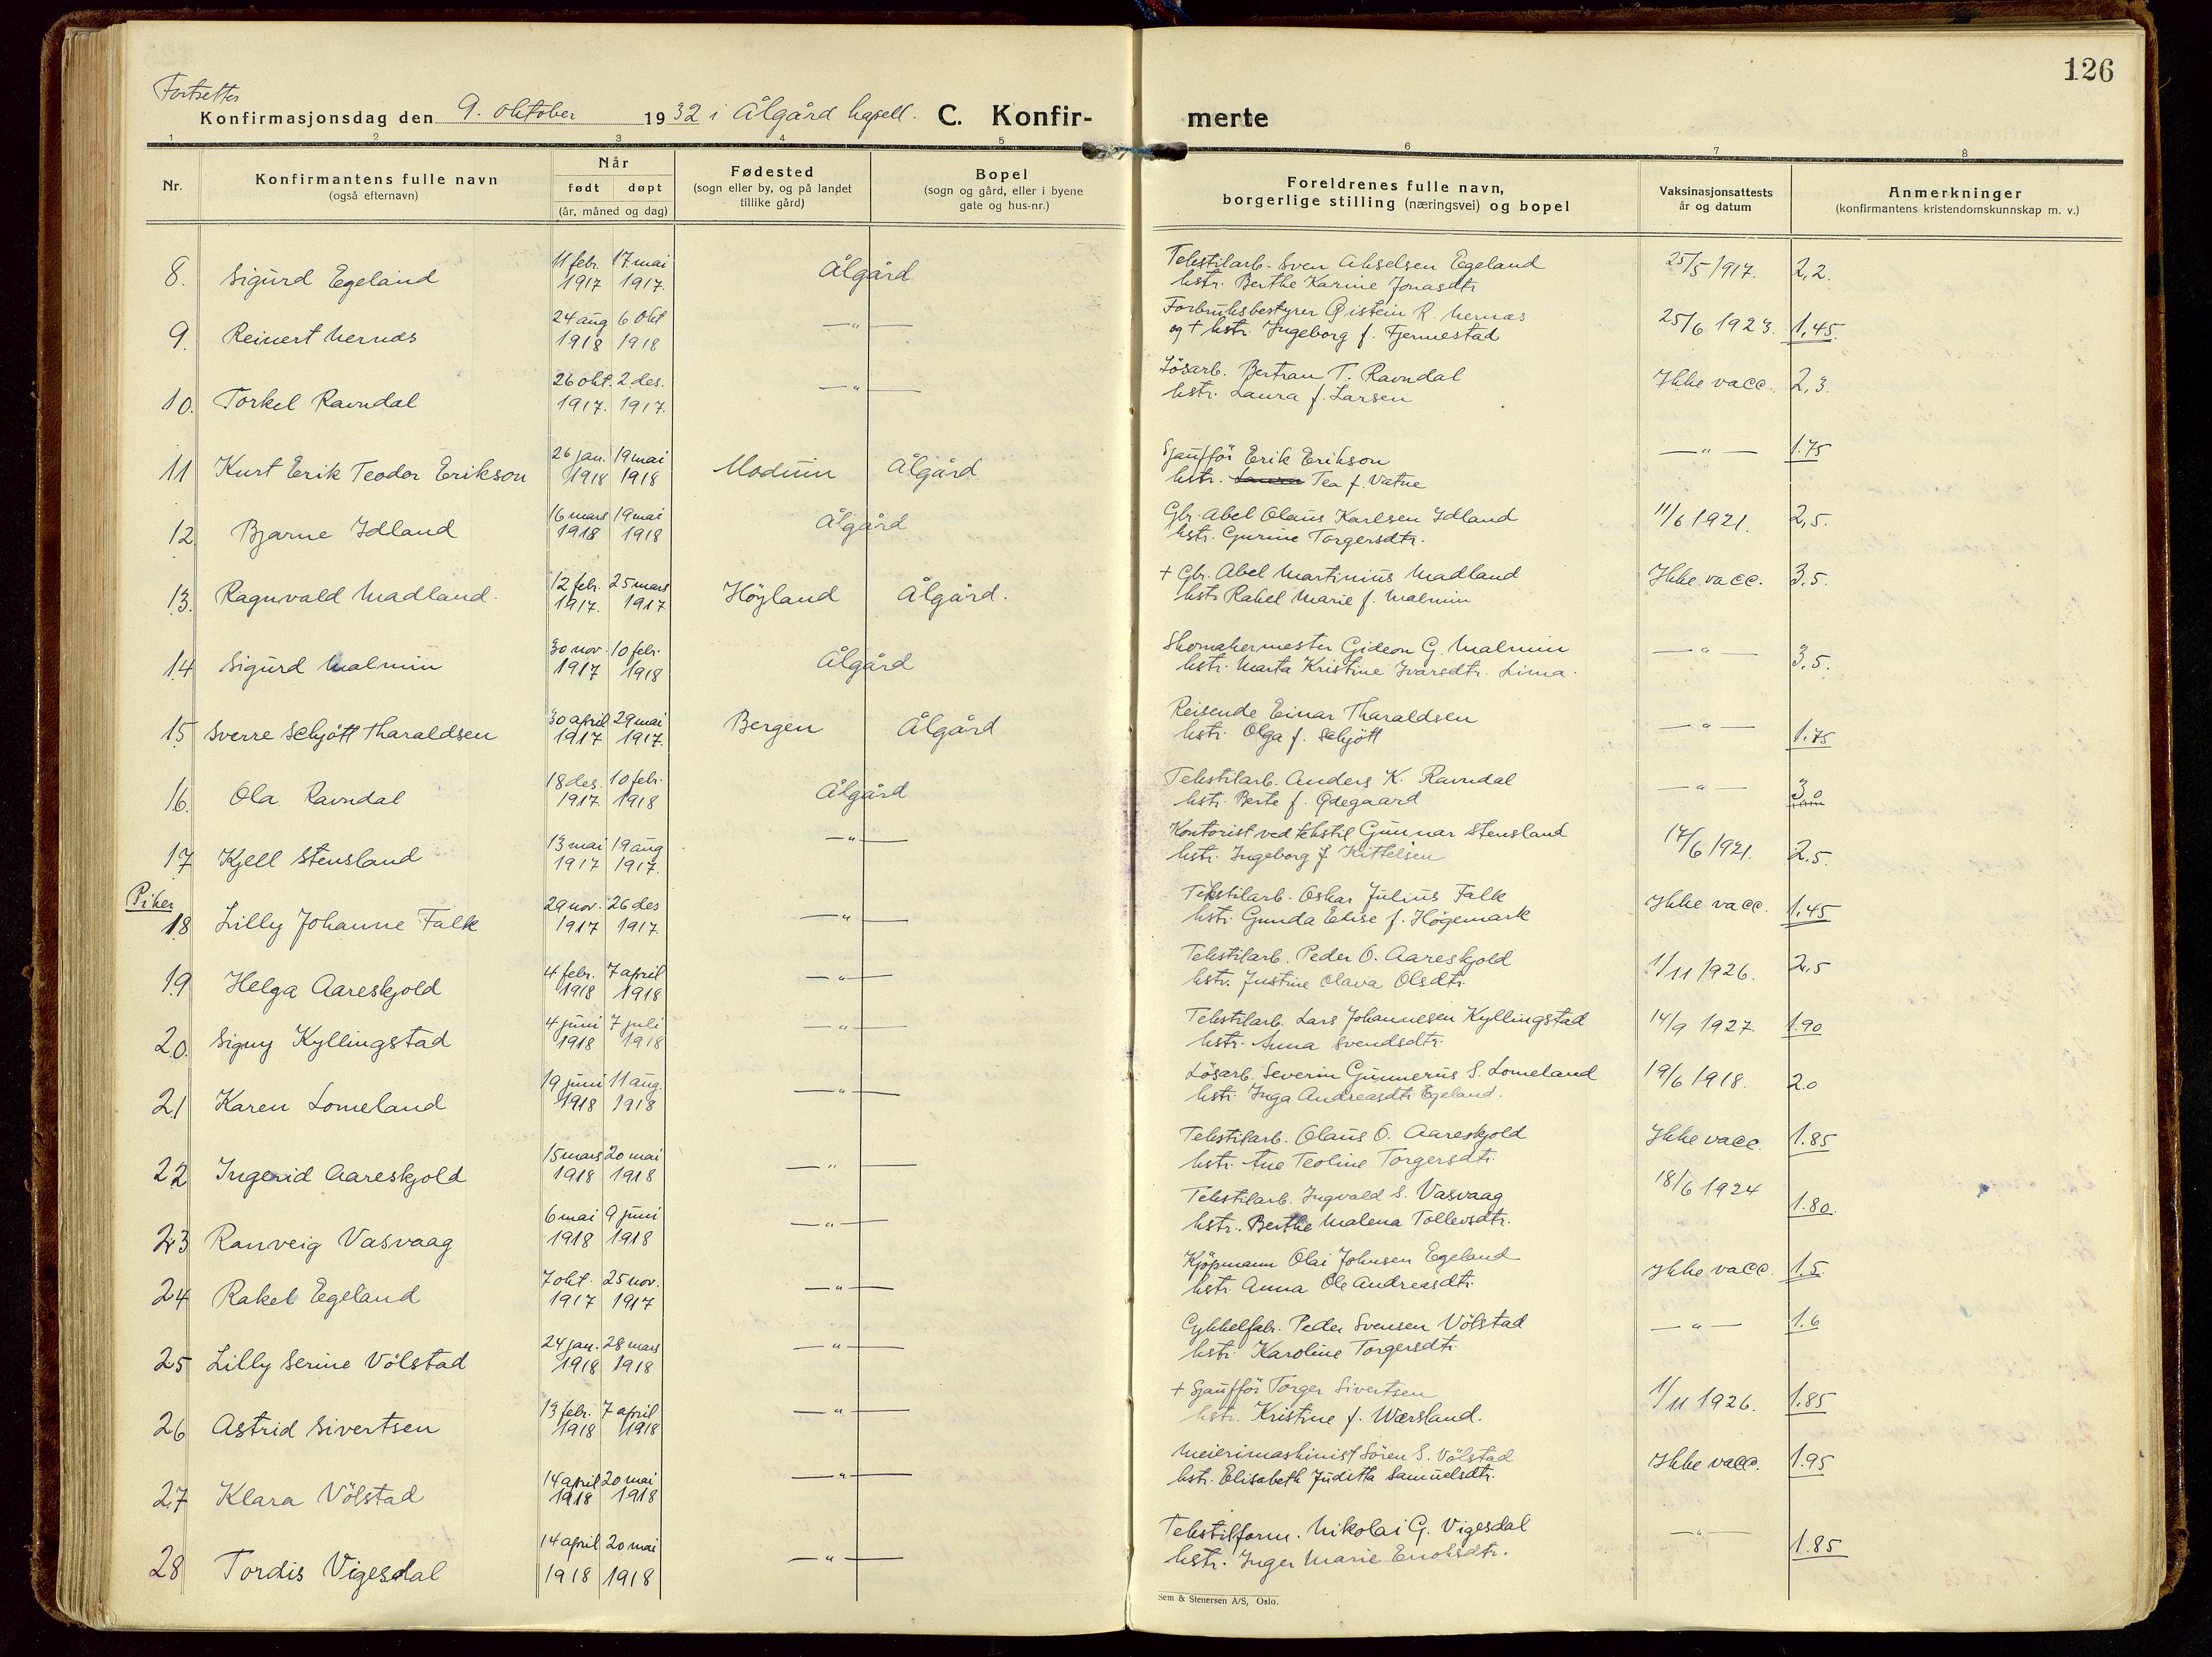 126
Fortsetter
Konfirmasjonsdag den 9. oktober 1932 i Ålgård kapell. C. Konfir- merte
1 2 3 4 5 6 7 8
Nr.
Konfirmantens fulle navn
(også efternavn)
Når
født døpt
(år, måned og dag)
Fødested
(sogn eller by, og på landet
tillike gård)
Bopel
(sogn og gård, eller i byene
gate og hus-nr.)
Foreldrenes fulle navn,
borgerlige stilling (næringsvei) og bopel
Vaksinasjonsattests
år og datum
Anmerkninger
(konfirmantens kristendomskunnskap m. v.)
8. Sigurd Egeland 11 febr. 1917 17 mai 1917. Ålgård Tekstilarb. Sven Akselsen Egeland 25/5 1917. 2,2.
hstr. Berthe Karine Jonasdtr
9. Reinert Nernæs 24 aug 1918 6 okt 1918 —"— Forbruksbestyrer Øistein R. Nernæs 25/6 1923. 1,45.
og + hstr. Ingeborg f. Fjermestad
10. Torkel Ravndal 26 okt. 1917. 2 des. 1917. —"— Lösarb. Bertran T. Ravndal Ikke vacc. 2,3.
hstr. Laura f. Larsen
11 Kurt Erik Teodor Erikson 26 jan. 1918 19 mai 1918 Modum Ålgård Sjaufför Erik Erikson —"— 1.75
hstr. Tea f. Vatne
12. Bjarne Idland 16 mars 1918 19 mai 1918 Ålgård Gbr. Abel Olaus Karlsen Idland 11/6 1921. 2,5.
hstr. Gurine Torgersdtr.
13. Ragnvald Madland. 12 febr. 1917. 25 mars 1917 Höyland Ålgård. + Gbr. Abel Martinius Madland Ikke vacc. 3,5.
hstr Rakel Marie f. Malmin
14 Sigurd Malmin 30 nov. 1917 10 febr. 1918 Ålgård Skomakermester Gideon G. Malmin —"— 3,5.
hstr. Marta Kristine Ivarsdtr. Lima.
15 Sverre Schjött Tharaldsen 30 april 1917 29 mai 1917. Bergen Ålgård Reisende Einar Tharaldsen —"— 1.75
hstr. Olga f. Schjött
16. Ola Ravndal 18 des. 1917 10 febr. 1918 Ålgård Tekstilarb. Anders K. Ravndal —"— 3.0
hstr. Berte f. Ødegaard
17 Kjell Stensland 13 mai 1917 19 aug 1917. —"— Kontorist ved tekstil Gunnar Stensland 17/6 1921. 2.5.
hstr. Ingeborg f Kittelsen
Piker
18 Lilly Johanne Falk 29 nov. 1917 26 des 1917. —"— Tekstilarb. Oskar Julius Falk Ikke vacc. 1,45
hstr. Gunda Elise f. Högemark
19 Helga Aareskjold 4 febr. 1918 7 april 1918 —"— Tekstilarb. Peder O. Aareskjold 1/11 1926. 2,5
hstr. Justine Olava Olsdtr.
20. Signy Kyllingstad 4 juni 1918 7 juli 1918 —"— Tekstilarb. Lars Johannesen Kyllingstad 14/9 1927. 1.90
hstr. Anna Svendsdtr.
21 Karen Lomeland 19 juni 1918 11 aug. 1918 —"— Lösarb. Severin Gunnerus S. Lomeland 19/6 1918. 2.0
hstr. Inga Andreasdtr Egeland.
22 Ingerid Aareskjold 15 mars 1918 20 mai 1918 —"— Tekstilarb. Olaus O. Aareskjold Ikke vacc. 1.85
hstr. Ane Teoline Torgersdtr.
23 Ranveig Vasvaag 6 mai 1918 9 juni 1918 —"— Tekstilarb. Ingvald S. Vasvaag 18/6 1924 1.80.
hstr. Berthe Malena Tollevsdtr.
24 Rakel Egeland 7 okt. 1917 25 nov. 1917 —"— Kjöpmann Olai Johnsen Egeland Ikke vacc. 1.5.
hstr. Anna Ole Andreasdtr.
25 Lilly Serine Völstad 24 jan. 1918 28 mars 1918 —"— Cykkelfabr. Peder Svensen Völstad —"— 1.6
hstr. Karoline Torgersdtr.
26 Astrid Sivertsen 13 febr. 1918 7 april 1918 —"— + Sjaufför Torger Sivertsen 1/11 1926. 1.85
hstr. Kristine f. Wærsland.
27 Klara Völstad 14 april 1918 20 mai 1918 —"— Meierimaskinist Sören S. Völstad Ikke vacc. 1.95
hstr. Elisabeth Juditha Samuelsdtr.
28 Tordis Vigesdal 14 april 1918 20 mai 1918 —"— Tekstilform. Nikolai G. Vigesdal —"— 1.85
hstr. Inger Marie Enoksdtr.
Sem & Stenersen A/S, Oslo.